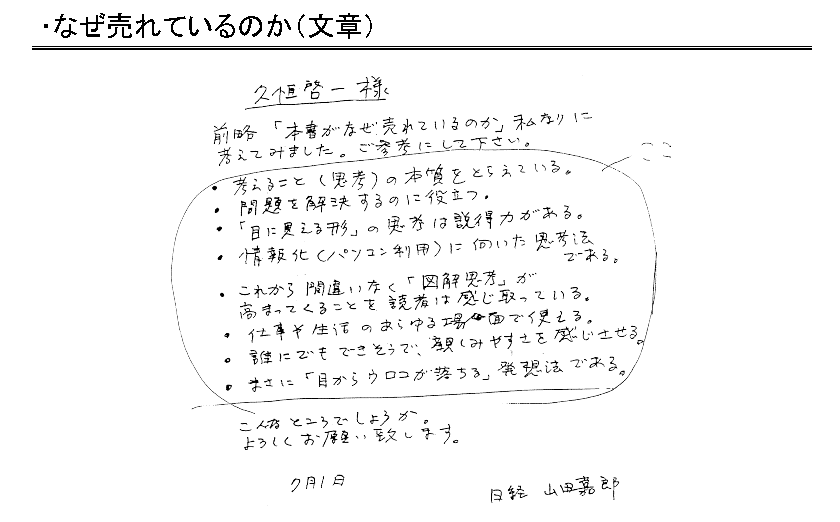 ・なぜ売れているのか（文章）
久恒啓一様
前略「本書がなぜ売れているのか」私なりに
考えてみました。ご参考にして下さい。
ここ
・考えること（思考）の本質をとらえている。
・問題を解決するのに役立つ。
・「目に見える形」の思考は説得力がある。
・情報化（パソコン利用）に向いた思考法
である。
・これから間違いなく「図解思考」が
高まってくることを読者は感じ取っている。
・仕事や生活のあらゆる場面で使える。
・誰にでもできそうで、親しみやすさを感じさせる。
・まさに「目からウロコが落ちる」発想法である。
こんなところでしょうか。
よろしくお願い致します。
7月1日
日経 山田嘉郎